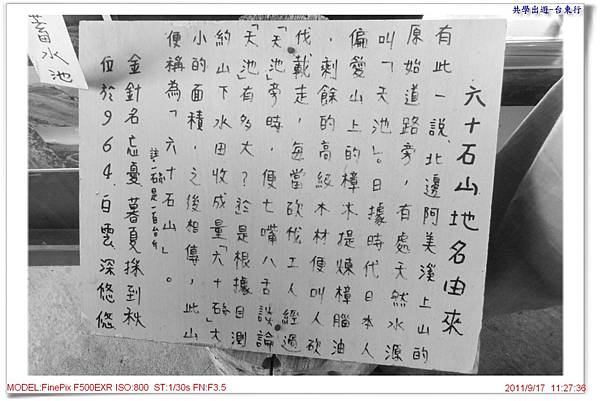 共學出遊-台東行
蓄水池
六十石山地名由來
有此一說,北邊阿美溪上山的
原始道路旁,有處天然水源
叫「天池」。日據時代日本人
偏愛山上的樟木提煉樟腦油
,剩餘的高級木材便叫人砍
伐載走,每當砍伐工人經過
「天池」旁時,便七嘴八舌談論
「天池」有多大?於是根據目測
約山下水田收成量「六十石」大
小的面積,之後相傳,此山
便稱為「六十石山」。
註:一石是一百台斤
金針名忘憂暮夏採到秋
位於964白雲深悠悠
MODEL:FinePix F500EXR ISO:800 ST:1/30s FN:F3.5
2011/9/17 11:27:36